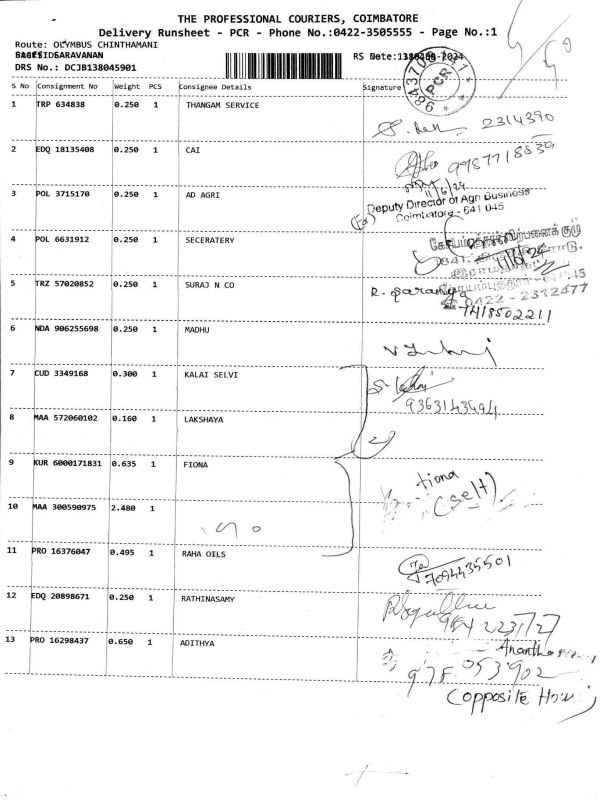 THE PROFESSIONAL COURIERS, COIMBATORE
Delivery Runsheet - PCR - Phone No.:0422-3505555 - Page No.:1
Route: OLYMBUS CHINTHAMANI
SARAVANAN
RS Note:
DRS No.: DCJB138045901
S No Consignment No Weight PCS Consignee Details Signature
PCR
1 TRP 634838 0.250 1 THANGAM SERVICE
2314390
2 EDQ 18135408 0.250 1 CAI
11/6/24
3 POL 3715170 0.250 1 AD AGRI
Deputy Director of Agri Business
Coimbatore - 641 045
4 POL 6631912 0.250 1 SECERATERY
11/6/24
5 TRZ 57020852 0.250 1 SURAJ N CO
0422 - 2312477
7418502211
6 NDA 906255698 0.250 1 MADHU
7 CUD 3349168 0.300 1 KALAI SELVI
8 MAA 572060102 0.160 1 LAKSHAYA
9 KUR 6000171831 0.635 1 FIONA
fiona
(self)
10 MAA 300590975 2.480 1
11 PRO 16376047 0.495 1 RAHA OILS
7094435501
12 EDQ 20898671 0.250 1 RATHINASAMY
13 PRO 16298437 0.650 1 ADITHYA
(opposite